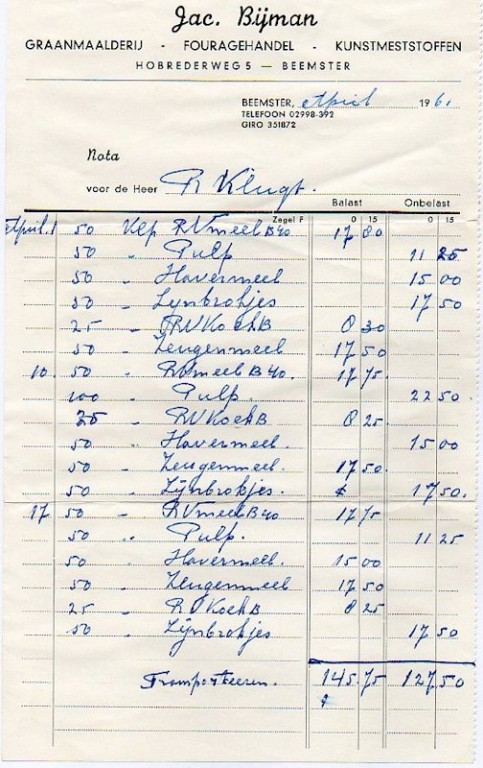 Jac. Bijman
GRAANMAALDERIJ - FOURAGEHANDEL - KUNSTMESTSTOFFEN
HOBREDERWEG 5 — BEEMSTER
BEEMSTER, April 1961
TELEFOON 02998-392
GIRO 351872
Nota
voor de Heer R Klugt.
Balast Onbelast
Zegel F 0 15 0 15
April 1 50 Klg RVmeel B40 17 80
50 " Pulp 11 25
50 " Havermeel 15 00
50 " Lijnbrokjes 17 50
25 " RVKoekB 8 30
50 " Zeugenmeel 17 50
10. 50 " RVmeel B40. 17 75.
100 " Pulp. 22 50.
25 " RVKoekB 8 25.
50 " Havermeel. 15 00
50 " Zeugenmeel. 17 50.
50 " Lijnbrokjes. 17 50.
17 50 " RVmeel B40 17 75
50 " Pulp. 11 25
50 " Havermeel. 15 00
50 " Zeugenmeel 17 50
25 " RVKoekB 8 25
50 " Lijnbrokjes 17 50
Transporteeren. 145.75 127,50